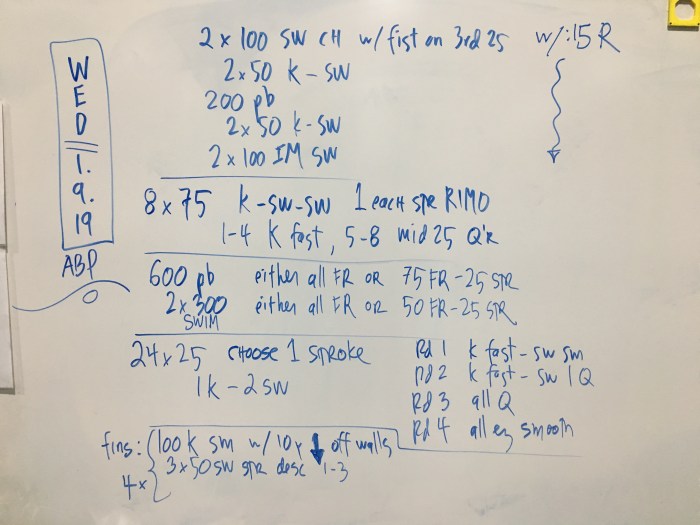 WED 1.9.19
ABP
2 x 100 SW CH w/ fist on 3rd 25 w/ :15 R
2 x 50 k - SW
200 pb
2 x 50 k - SW
2 x 100 IM SW
8 x 75 K - SW - SW 1 each STR RIMO
1-4 K fast, 5-8 mid 25 Q'R
600 pb either all FR OR 75 FR - 25 STR
2 x 300 either all FR OR 50 FR - 25 STR
SWIM
24 x 25 CHOOSE 1 STROKE
1k - 2 SW
Rd 1 k fast - sw sm
Rd 2 k fast - sw 1 Q
Rd 3 all Q
Rd 4 all ez smooth
fins: 100 k sm w/ 10y ↓ off walls
4x 3 x 50 SW STR desc 1-3